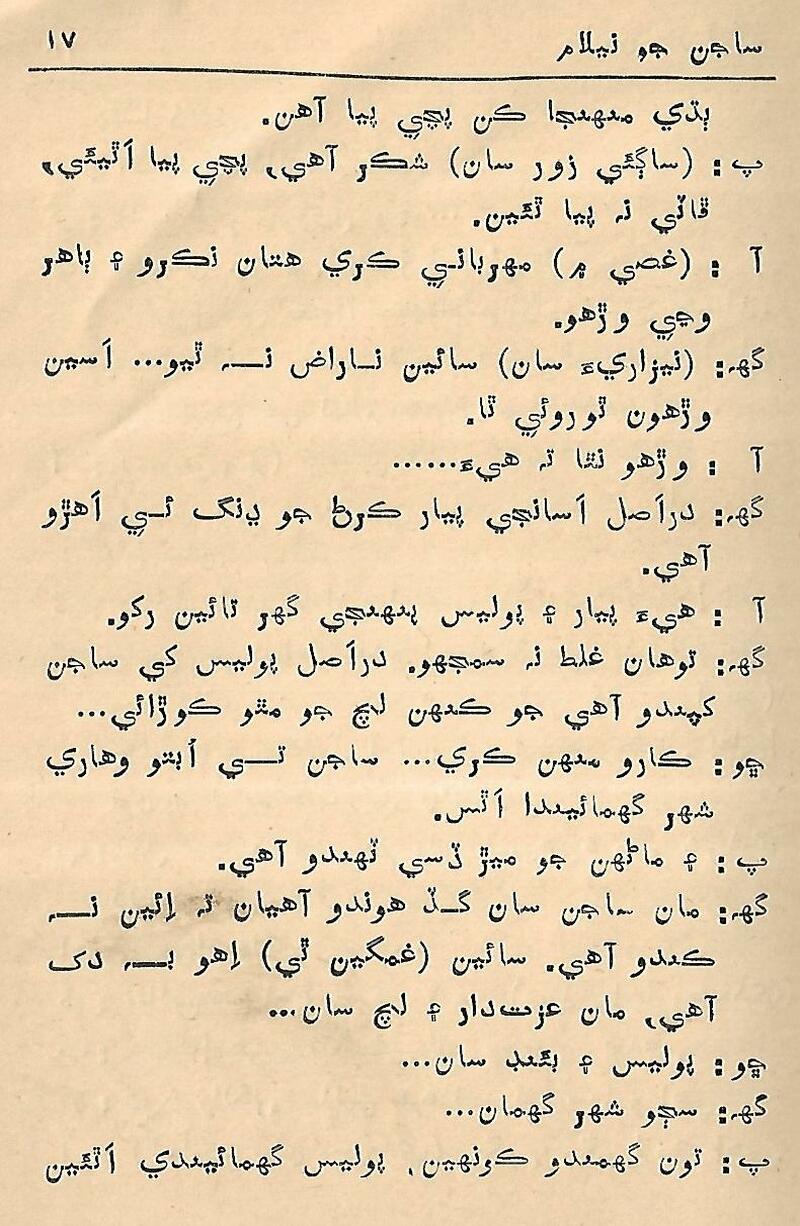 ساجن جو نيلام ۱۷
ٻڌي منهنجا ڪن پچي پيا آهن.
پ : (ساڳئي زور سان) شڪر آهي، پچي پيا اَٿيئي،
ڦاٽي نہ پيا ٿئين.
آ : (غصي ۾) مهرباني ڪري هتان نڪرو ۽ ٻاهر
وڃي وڙهو.
گھہ: (نيزاريءَ سان) سائين نــاراض نـــہ ٿيو... اَسين
وڙهون ٿوروئي ٿا.
آ : وڙهو نٿا تہ هيءَ......
گھہ: دراَصل اَسانجي پيار ڪرڻ جو ڍنگ ئــي اَهڙو
آهي.
آ : هيءَ پيار ۽ پوليس پنهنجي گهر تائين رکو.
گھہ: توهان غلط نہ سمجهو. دراَصل پوليس کي ساجن
کپندو آهي جو ڪنهن لڄ جو مٿو ڪوڙائي...
چو : ڪارو منهن ڪري... ساجن تـــي اُبتو وهاري
شهر گهمائيندا اَٿس.
پ : ۽ ماڻهن جو ميڙ ڏسي ٽهندو آهي.
گھہ: مان ساجن سان گــڏ هوندو آهيان تہ اِئين نـــہ
ڪندو آهي. سائين (غمگين ٿي) اِهو بـــہ دک
آهي، مان عزت‌دار ۽ لڄ سان...
چو : پوليس ۽ بئنڊ سان...
گھہ: سڄو شهر گهمان...
پ : تون گهمندو ڪونهين، پوليس گهمائيندي اَٿئين